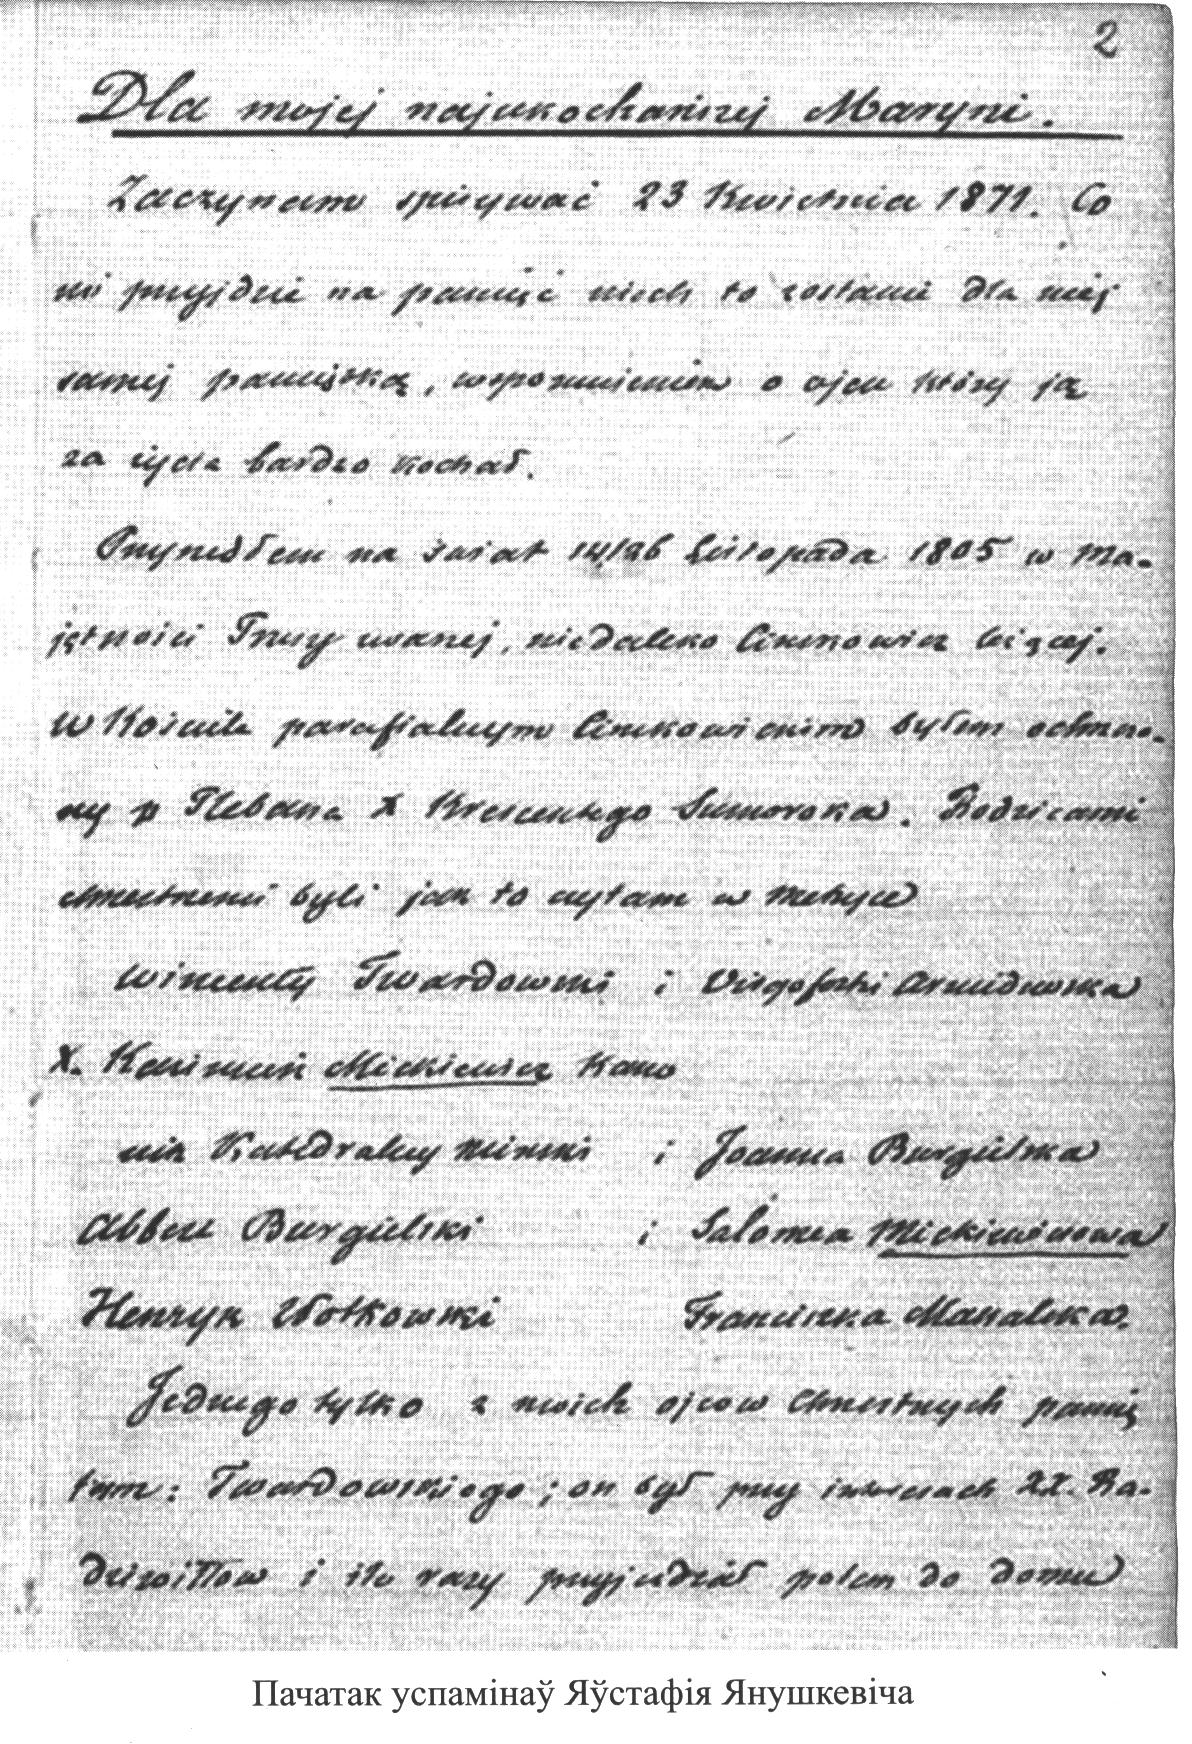 2
Dla mojej najukochańszej Maryni.
Zaczynam spisywać 23 Kwietnia 1871. Co
mi przyjdzie na pamięć niech to zostanie dla niej
samej pamiątką, wspomnieniem o ojcu który ją
za życia bardzo kochał.
Przyszedłem na świat 14/26 Listopada 1805 w Ma-
jętności niedaleko leżącej.
W Kościele parafialnym Cimkowickim byłem ochrzczo-
ny p Plebana X Krescentego Sumoroka. Rodzicami
chrzestnemi byli jak to czytam w metryce
Wincenty Twardowski i
X. Kazimierz Mickiewicz Kano
nik Katedralny Minski i Joanna Burgielska
Albert Burgielski i Salomea Mickiewiczowa
Henryk Wołkowski Franciszka
Jednego tylko z moich ojców Chrzestnych pamię
tam: Twardowskiego; on był przy interesach XX. Ra-
dziwiłłów i ile razy przyjeżdżał potem do domu
Пачатак успамінаў Яўстафія Янушкевіча